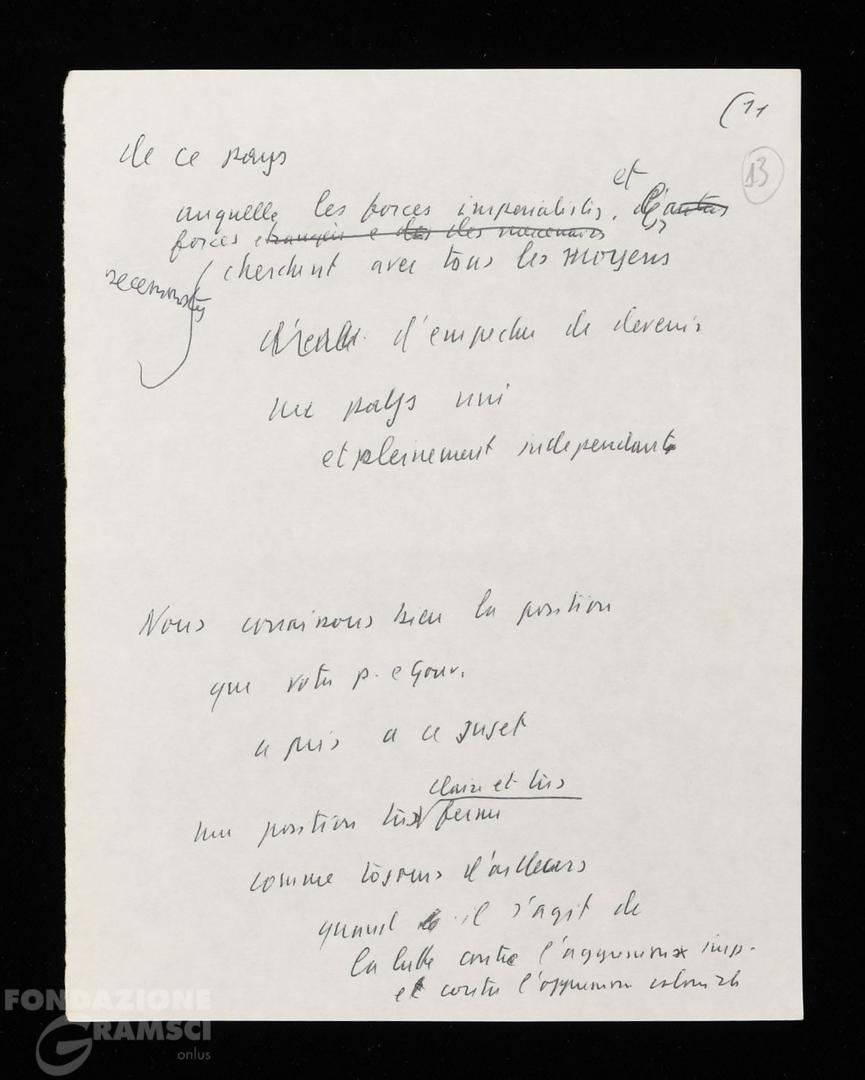 (11
13
de ce pays
et
auquelle les forces imperialistes, d'autres
forces etrangeres e des mercenaires
cherchent avec tous les moyens
d'empecher de devenir
un pays uni
et pleinement independant
Nous connaissons bien la position
que votre p. e Gouv.
a pris a ce sujet
claire et tres
une position tres ferme
comme tojours d'ailleurs
quand il s'agit de
la lutte contre l'aggression imp.
et contre l'oppression coloniale
FONDAZIONE
GRAMSCI
onlus